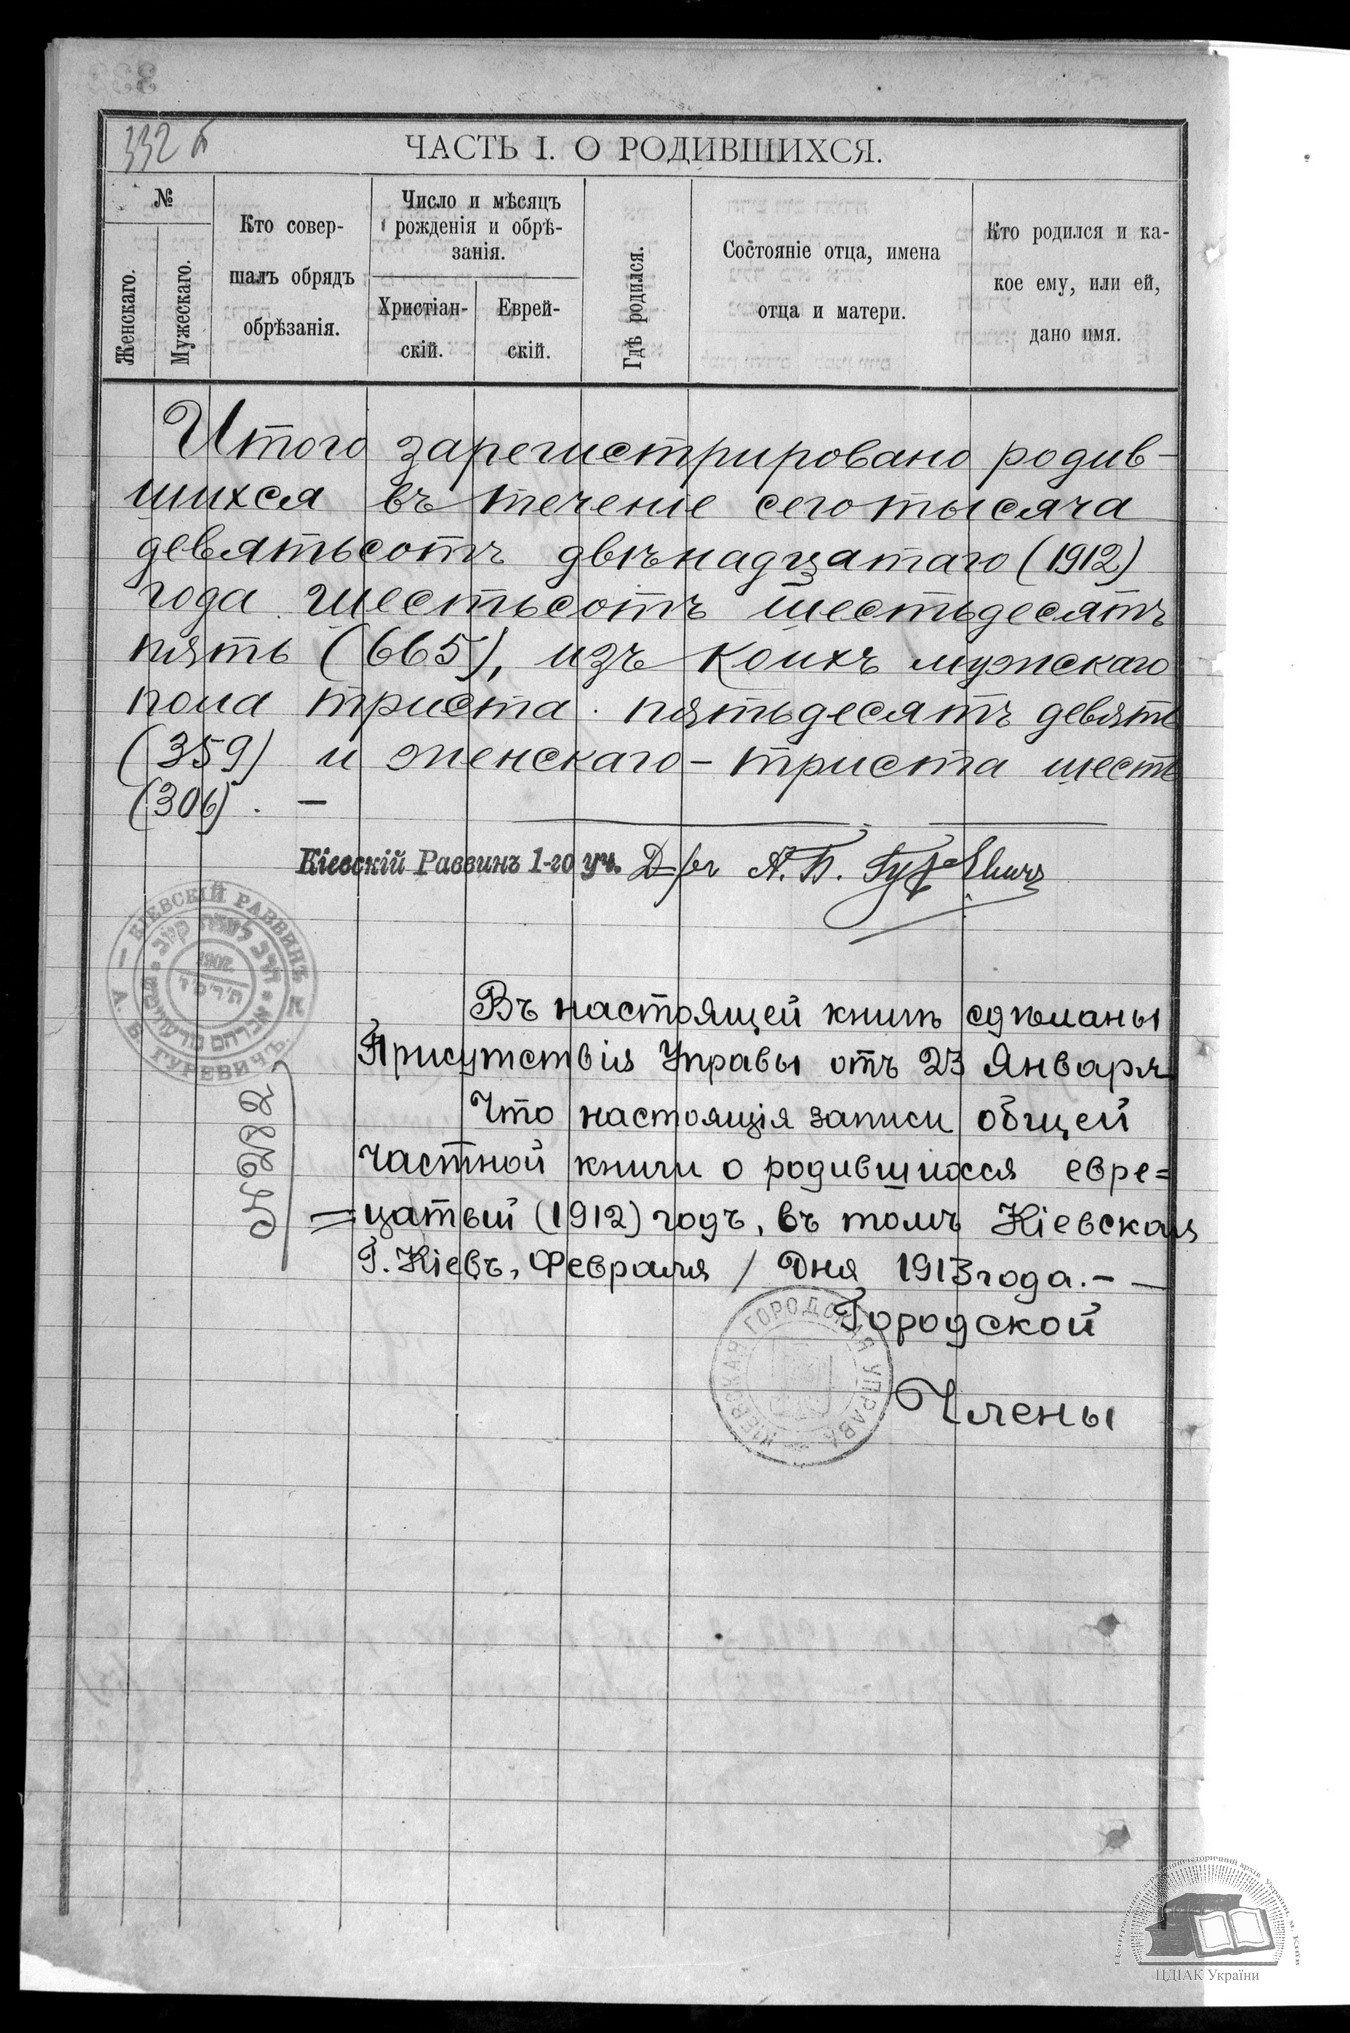 332 б
ЧАСТЬ I. О РОДИВШИХСЯ.
№
Женскаго.
Мужескаго.
Кто совер-
шалъ обрядъ
обрѣзанія.
Число и мѣсяцъ
рожденія и обрѣ-
занія.
Христіан-
скій.
Еврей-
скій.
Гдѣ родился.
Состояніе отца, имена
отца и матери.
Кто родился и ка-
кое ему, или ей,
дано имя.
Итого зарегистрировано родив-
шихся въ теченіе сего тысяча
девятьсотъ двѣнадцатаго (1912)
года шестьсотъ шестьдесятъ
пять (665), изъ коихъ мужскаго
пола триста пятьдесятъ девять
(359) и женскаго - триста шесть
(306). —
Кіевскій Раввинъ 1-го уч. Д-ръ А. Б. Гуревичъ
КІЕВСКІЙ РАВВИНЪ
А. Б. ГУРЕВИЧЪ.
1902.
№ 282
Въ настоящей книгѣ сдѣланы
Присутствія Управы отъ 23 Января
Что настоящія записи общей
частной книги о родившихся евре=
=цатый (1912) годъ, въ томъ Кіевская
Г. Кіевъ, Февраля / Дня 1913 года. - —
Городской
Члены
КІЕВСКАЯ ГОРОДСКАЯ УПРАВА
Центральний державний історичний архів України, м. Київ
ЦДІАК України